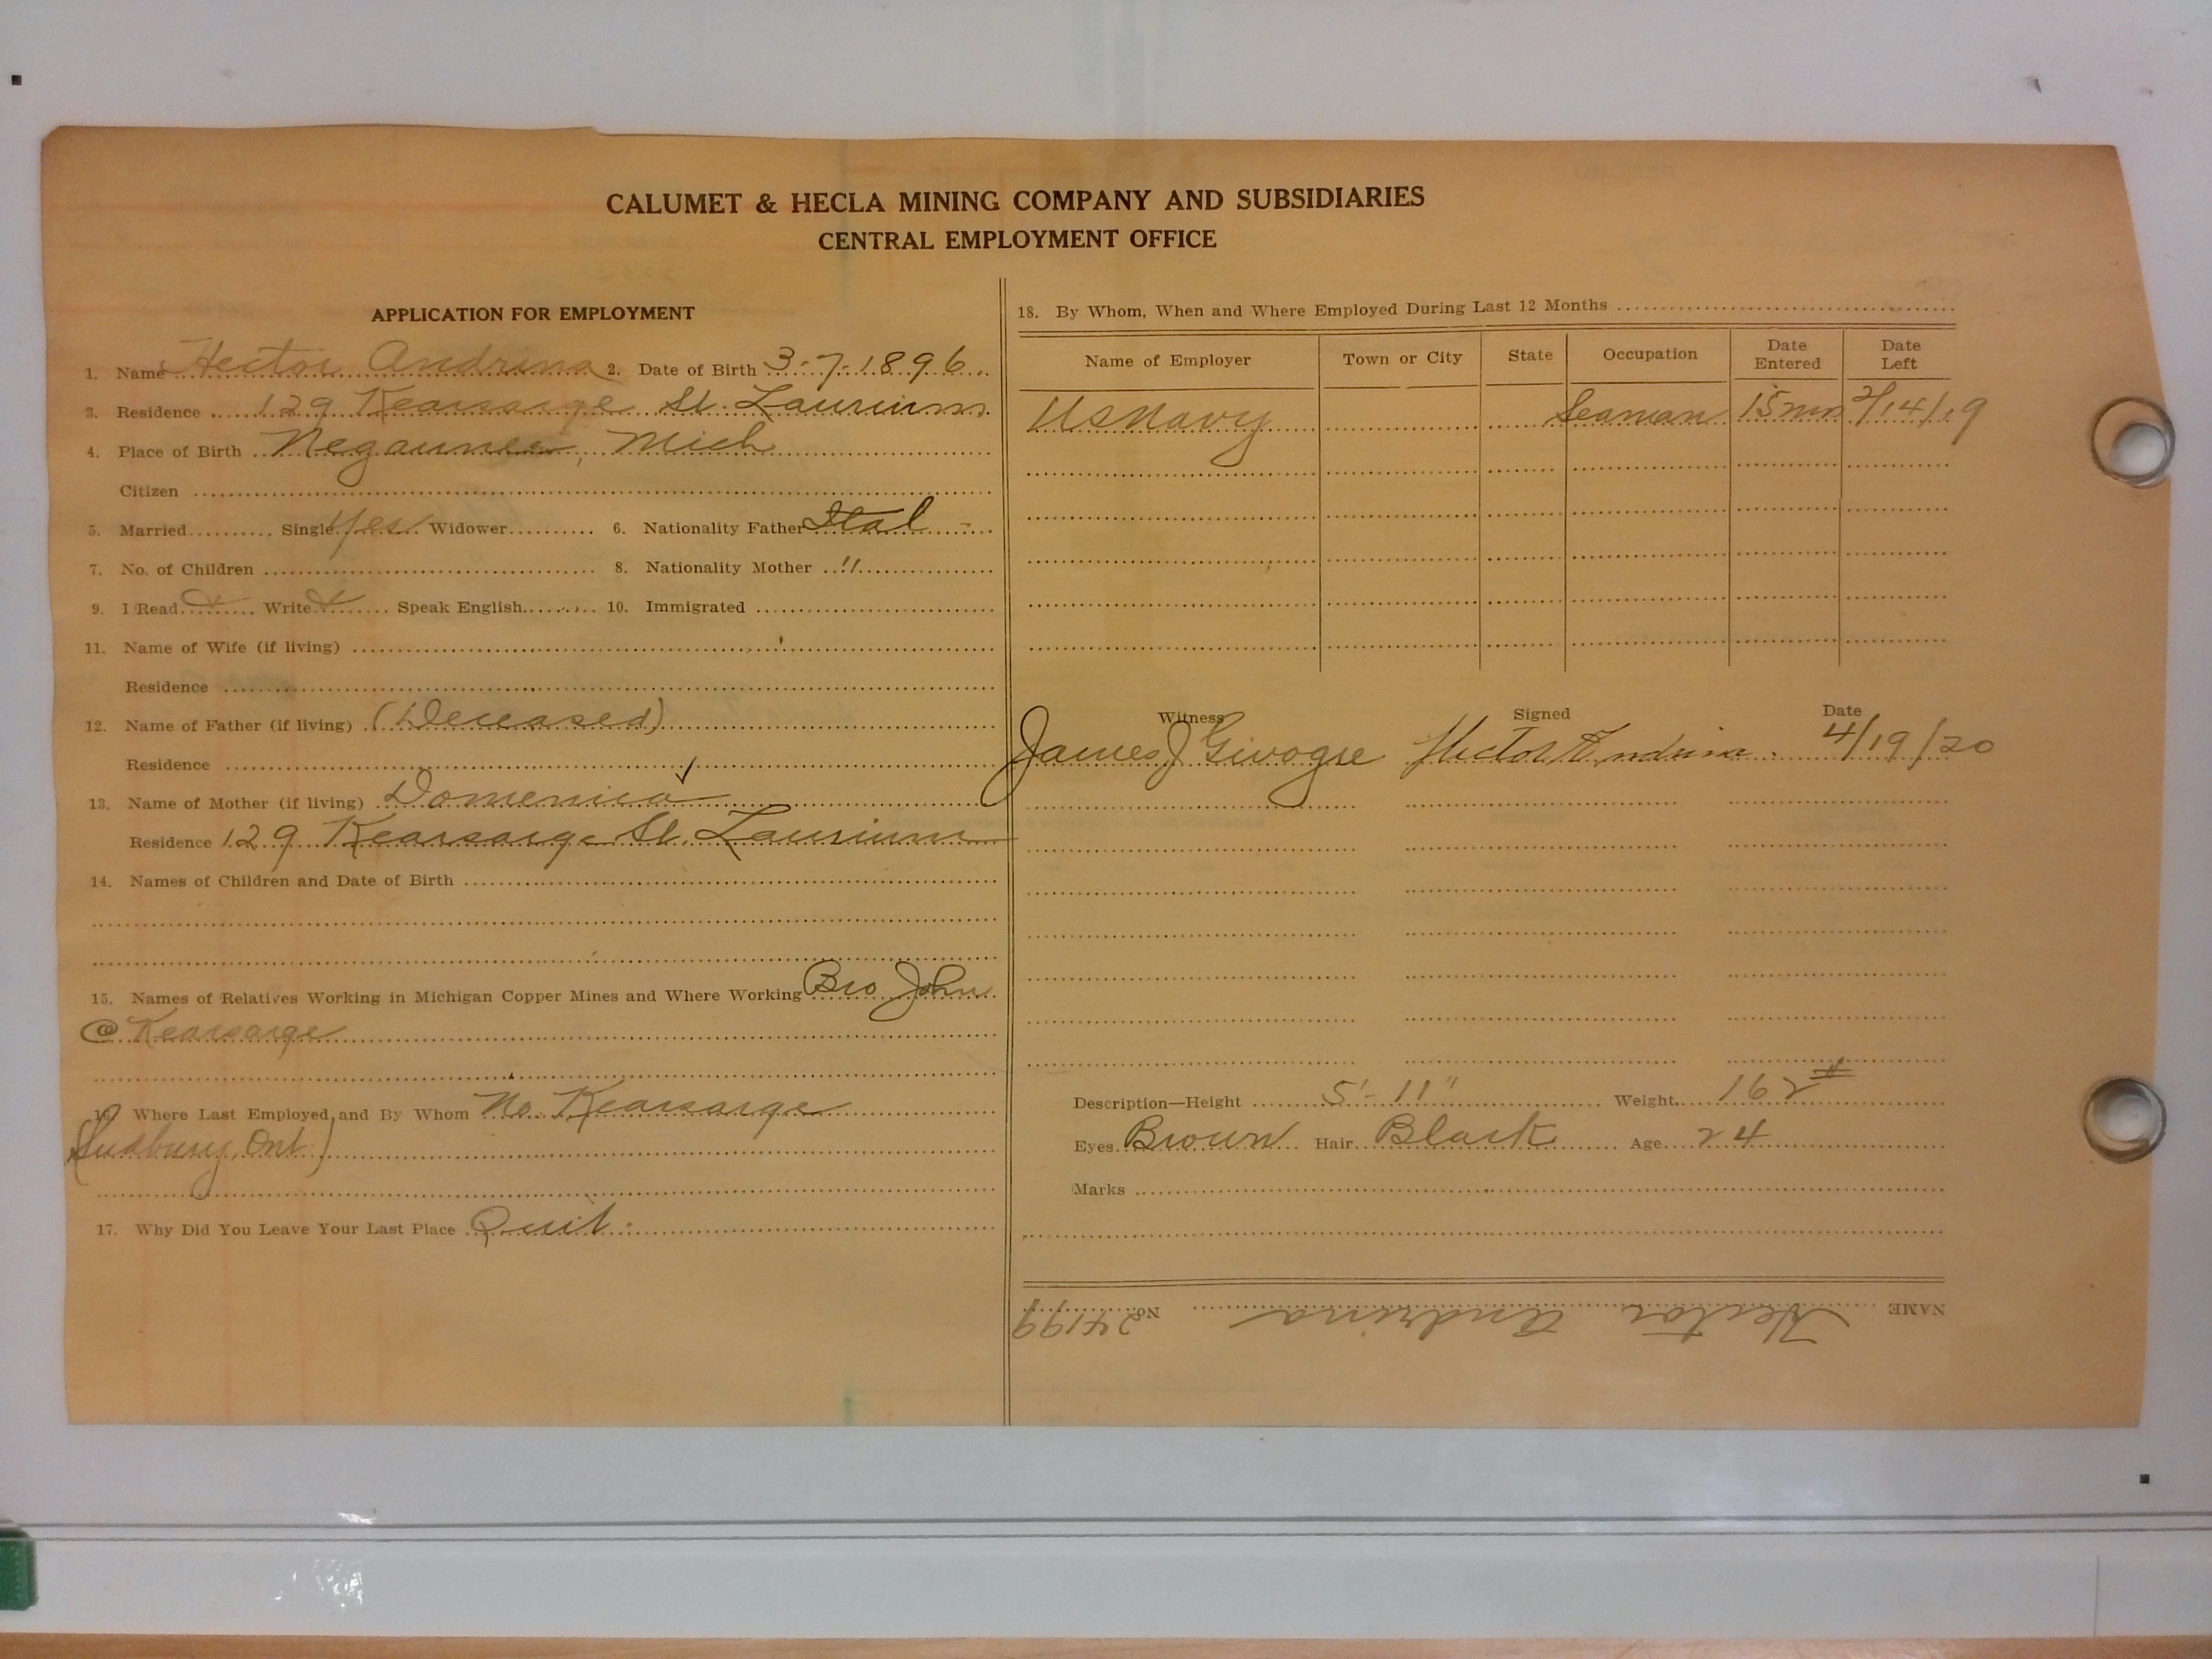 CALUMET & HECLA MINING COMPANY AND SUBSIDIARIES
CENTRAL EMPLOYMENT OFFICE
APPLICATION FOR EMPLOYMENT
1. Name Hector Andrina 2. Date of Birth 3-7-1896
3. Residence 129 Kearsarge St. Laurium
4. Place of Birth Negaunee, Mich
Citizen
5. Married Single Yes Widower 6. Nationality Father Ital
7. No. of Children 8. Nationality Mother "
9. I Read Write Speak English 10. Immigrated
11. Name of Wife (if living)
Residence
12. Name of Father (if living) (Deceased)
Residence
13. Name of Mother (if living) Domenica ✓
Residence 129 Kearsarge St. Laurium
14. Names of Children and Date of Birth
15. Names of Relatives Working in Michigan Copper Mines and Where Working Bro John
@ Kearsarge
16. Where Last Employed and By Whom No. Kearsarge
(Sudbury, Ont)
17. Why Did You Leave Your Last Place Quit
18. By Whom, When and Where Employed During Last 12 Months
Name of Employer Town or City State Occupation Date Entered Date Left
US Navy Seaman 15 mn 2/14/19
Witness Signed Date
James J Hector Andrina 4/19/20
Description—Height 5'-11" Weight 162#
Eyes Brown Hair Black Age 24
Marks
NAME Hector Andrina No. 24199